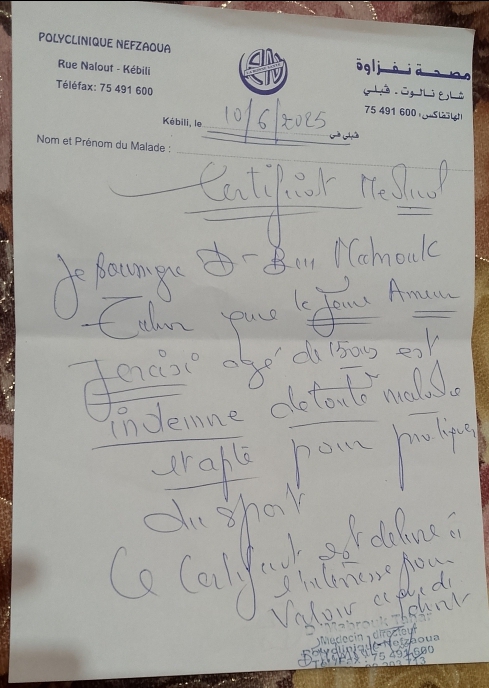 POLYCLINIQUE NEFZAOUA
Rue Nalout - Kébili
Téléfax: 75 491 600
مصحة نفزاوة
شارع نالوت . قبلي
الهاتفاكس: 600 491 75
Kébili, le 10/6/2025 قبلي في
Nom et Prénom du Malade :
Certificat Medical
Je soussigne Dr Ben Mabrouk
Tahar que le Jeune Ameur
agé de 15 ans est
indemne de toute maladie
et apte pour pratiquer
du sport
Ce Certificat est delivré à
l'interessé pour
valoir ce que de
droit
Mabrouk Tahar
Médecin directeur
Polyclinique Nefzaoua
75 491 600